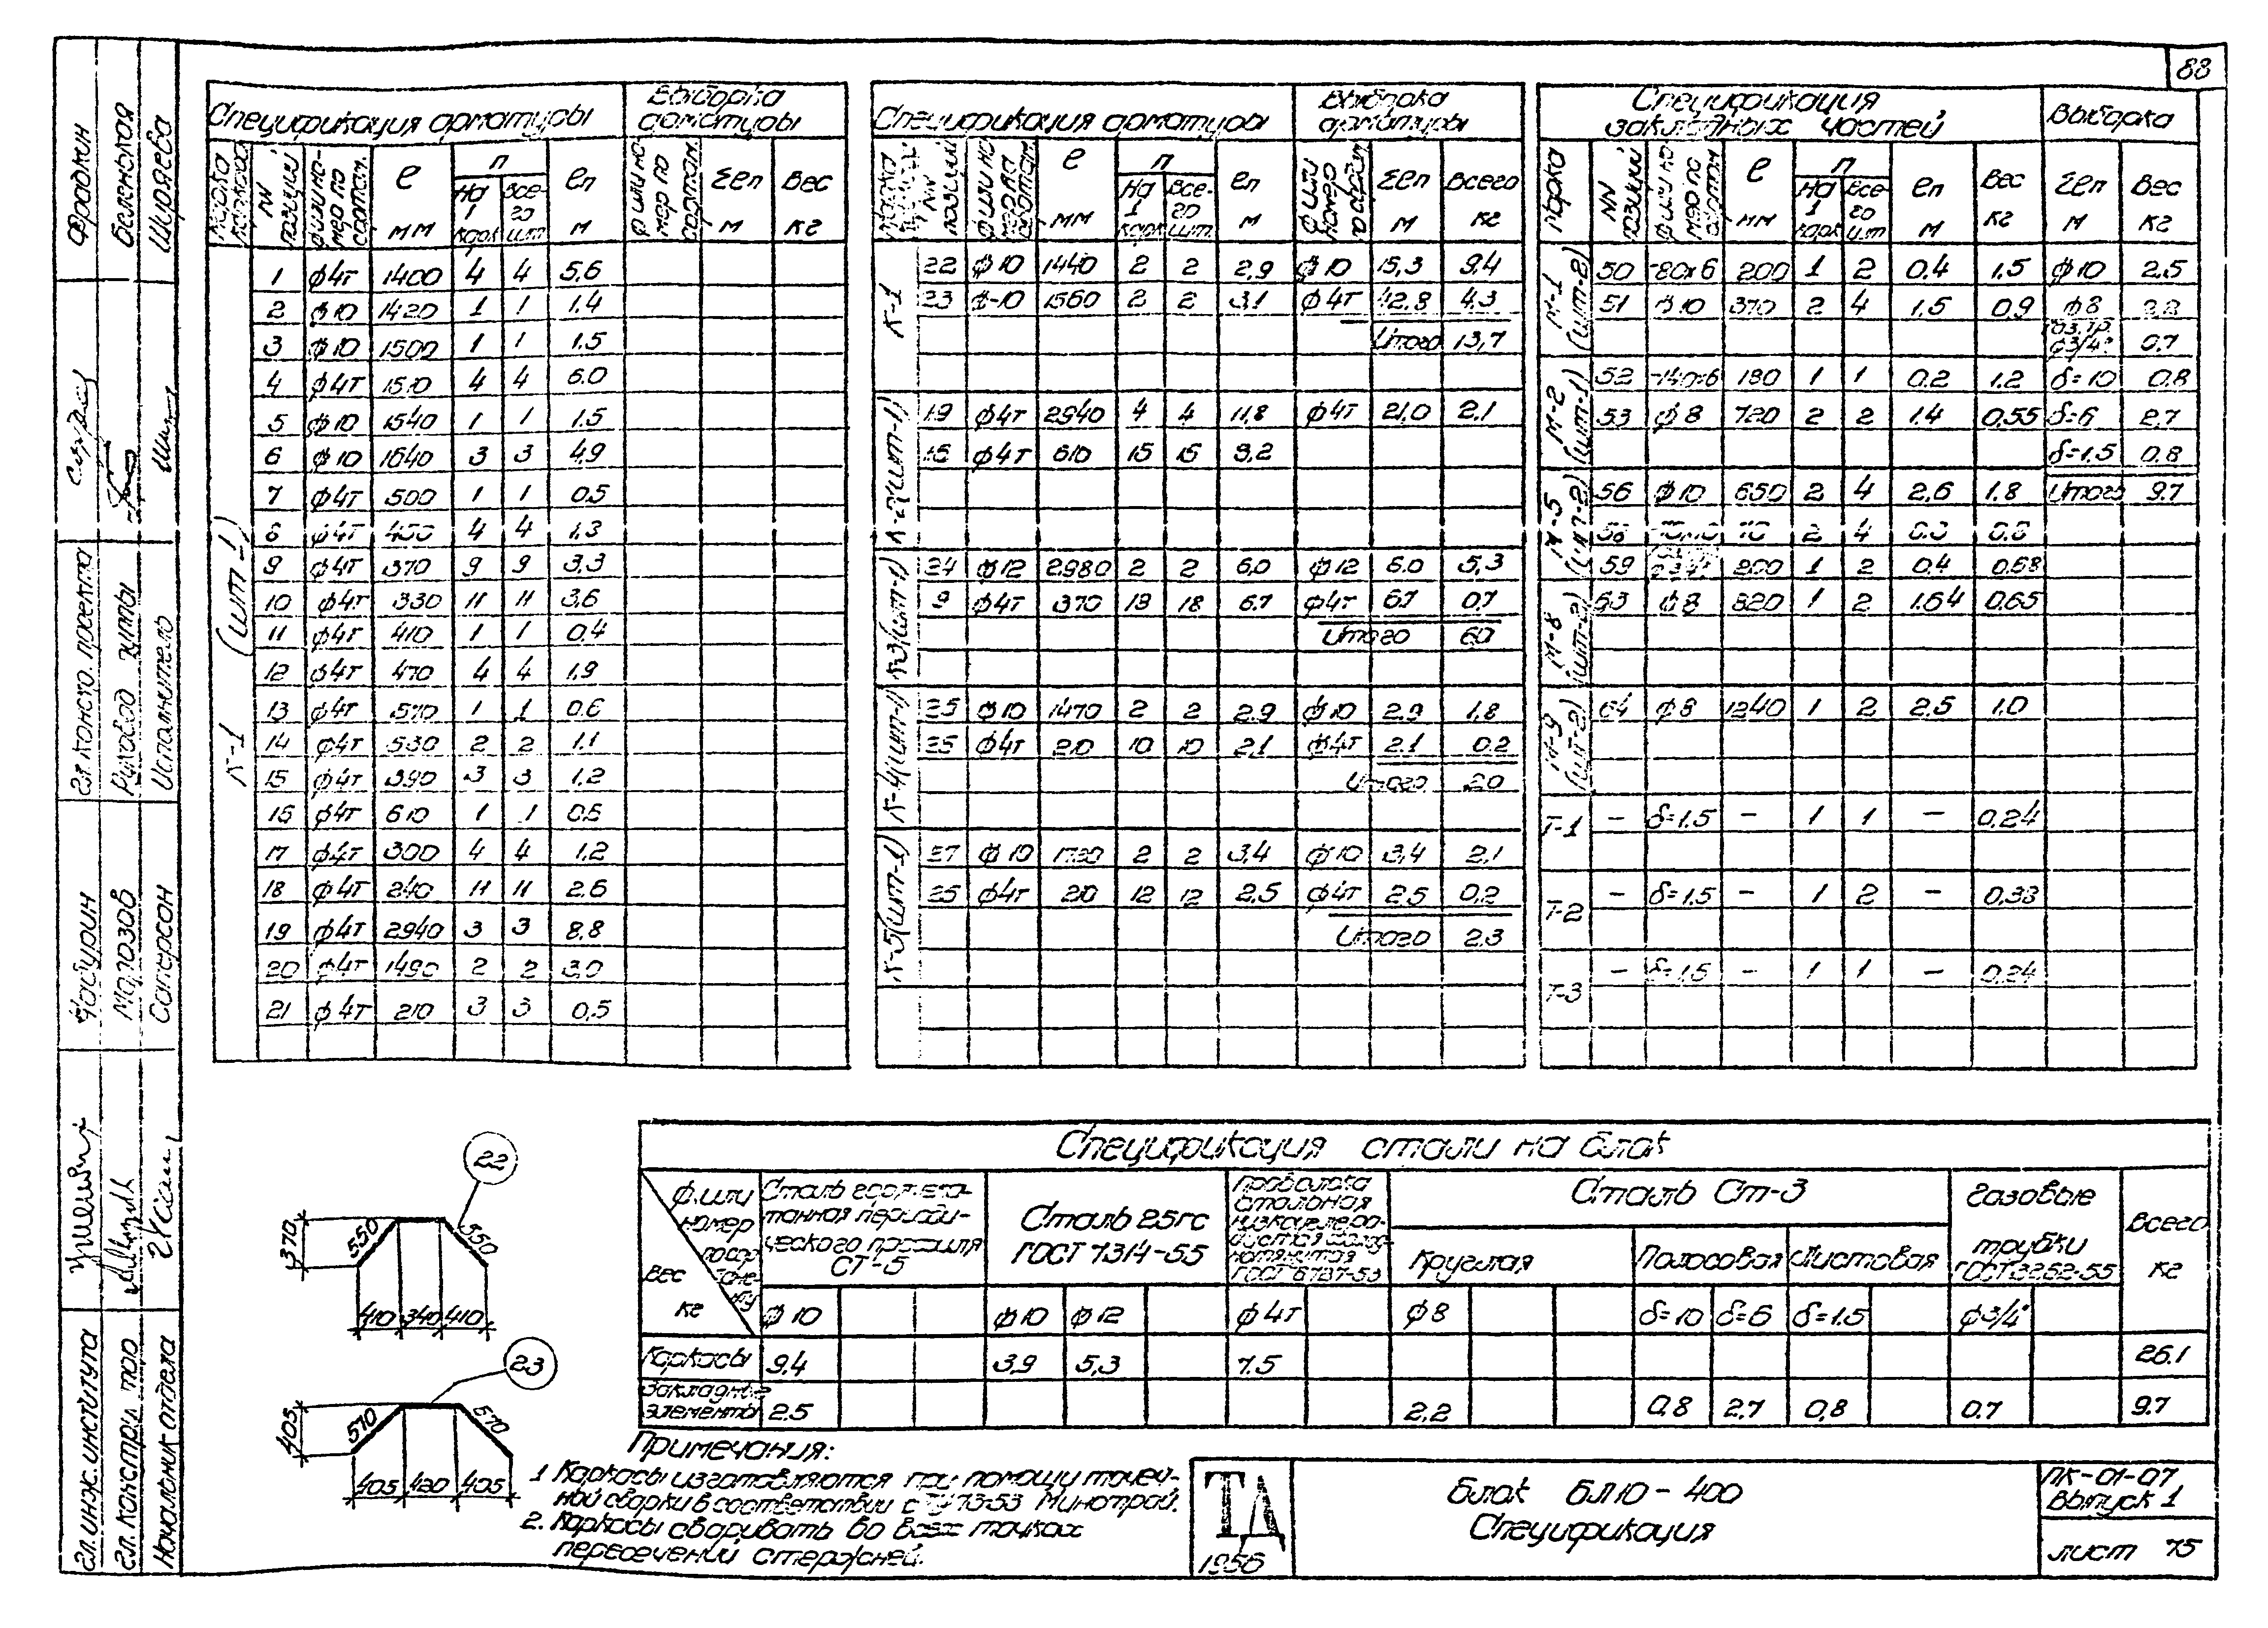 88
Спецификация арматуры Выборка арматуры
Марка каркаса NN позиций ф или номер по сортам. ℓ мм n на 1 карк все-го шт. ℓn м ф или номер по сортам. Σℓn м Вес кг
К-1 (шт-1)
1 ф4т 1400 4 4 5,6
2 ф10 1420 1 1 1.4
3 ф10 1500 1 1 1.5
4 ф4т 1510 4 4 6.0
5 ф10 1540 1 1 1.5
6 ф10 1640 3 3 4,9
7 ф4т 500 1 1 0.5
8 ф4т 4 4 1,3
9 ф4т 370 9 9 3.3
10 ф4т 330 11 11 3,6
11 ф4т 410 1 1 0.4
12 ф4т 470 4 4 1,9
13 ф4т 570 1 1 0.6
14 ф4т 530 2 2 1.1
15 ф4т 390 3 3 1.2
16 ф4т 610 1 1 0.6
17 ф4т 300 4 4 1,2
18 ф4т 240 11 11 2.6
19 ф4т 2940 3 3 8.8
20 ф4т 1490 2 2 3.0
21 ф4т 210 3 3 0,5
Спецификация арматуры Выборка арматуры
NN позиций ф или номер по сортам. ℓ мм n на 1 карк все-го шт. ℓn м ф или номер по сортам. Σℓn м Всего кг
К-1
22 ф10 1440 2 2 2,9 ф10 15,3 9.4
23 ф10 1560 2 2 3,1 ф4т 42.8 4,3
Итого 13,7
К-2 (шт-1)
19 ф4т 2940 4 4 11,8 ф4т 21,0 2.1
16 ф4т 610 15 15 9,2
К-3 (шт-1)
24 ф12 2980 2 2 6,0 ф12 6.0 5,3
9 ф4т 370 18 18 6.7 ф4т 6.7 0.7
Итого 6.0
К-4 (шт-1)
25 ф10 1470 2 2 2.9 ф10 2.9 1.8
ф4т 210 10 10 2,1 ф4т 2.1 0.2
Итого 2.0
К-5 (шт-1)
27 ф10 2 2 3,4 ф10 3,4 2.1
ф4т 210 12 12 2,5 ф4т 2.5 0.2
Итого 2.3
Спецификация закладных частей Выборка
Марка NN позиций ф или номер по сортам ℓ мм n на 1 карк все-го шт ℓn м Вес кг Σℓn м Вес кг
М-1 (шт-2)
50 -80х6 200 1 2 0.4 1.5 ф10 2.5
51 ф10 370 2 4 1.5 0.9 ф8
Газ. тр. ф3/4" 0.7
М-2 (шт-1)
52 -140х6 180 1 1 0.2 1.2 δ=10 0.8
53 ф8 720 2 2 1.4 0,55 δ=6 2,7
δ=1,5 0.8
М-5 (шт-2)
56 ф10 650 2 4 2,6 1.8 Итого 9.7
58 2 4
59 200 1 2 0.4 0,68
М-8 (шт-2)
63 ф8 820 1 2 1.64 0,65
М-9 (шт-2)
64 ф8 1240 1 2 2.5 1.0
Т-1 — δ=1.5 — 1 1 — 0,24
Т-2 — δ=1,5 — 1 2 — 0,33
Т-3 — δ=1,5 — 1 1 — 0,24
22
370 550 550
410 340 410
23
405 570 570
405 420 405
Спецификация стали на блок
ф или номер по сортаменту Вес кг
Сталь горячека-
танная периоди-
ческого профиля
СТ-5
Сталь 25гс
ГОСТ 7314-55
Проволока
стальная
низкоуглеро-
дистая холод-
нотянутая
Сталь Ст-3
Круглая Полосовая Листовая
Газовые
трубки
ГОСТ 3262-55
Всего
кг
ф10 ф10 ф12 ф4т ф8 δ=10 δ=6 δ=1.5 ф3/4"
Каркасы 9.4 3,9 5,3 7.5 26.1
Закладные элементы 2.5 2,2 0,8 2,7 0,8 0.7 9.7
Примечания:
1 Каркасы изготовляются при помощи точеч-
ной сварки в соответствии с ТУ 73-53 Минстрой.
2. Каркасы сваривать во всех точках
пересечений стержней.
ТД
1956
Блок БЛ10-400
Спецификация
ПК-01-07
Выпуск 1
лист 75
Фрадкин
Беленькая
Ширяева
Гл. констр. проекта
Руковод. группы
Исполнитель
Чабурин
Малозов
Саперсон
Гл. инж. института
Гл. констр. тро
Начальник отдела